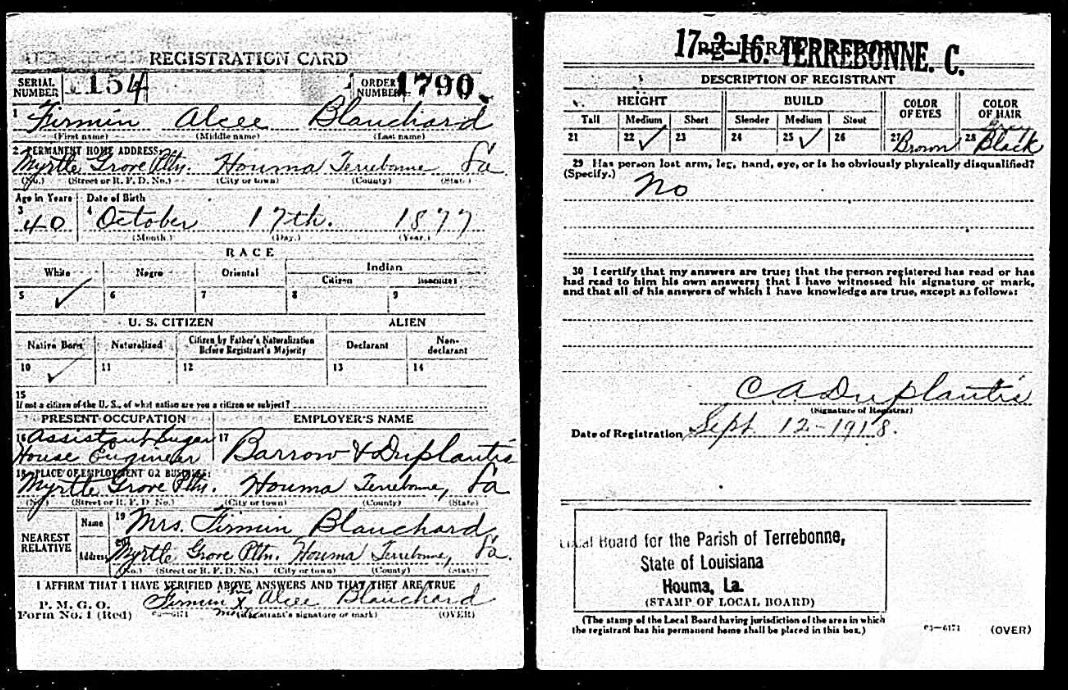 REGISTRATION CARD
SERIAL NUMBER 1154 ORDER NUMBER 1790
1 Firmin Alcee Blanchard
(First name) (Middle name) (Last name)
2 PERMANENT HOME ADDRESS:
Myrtle Grove Pltn. Houma Terrebonne La
(No.) (Street or R. F. D. No.) (City or town) (County) (State)
Age in Years Date of Birth
3 40 4 October 17th. 1877
(Month.) (Day.) (Year.)
RACE
White Negro Oriental Indian
Citizen Noncitizen
5 ✓ 6 7 8 9
U. S. CITIZEN ALIEN
Native Born Naturalized Citizen by Father's Naturalization Before Registrant's Majority Declarant Non-declarant
10 ✓ 11 12 13 14
15
If not a citizen of the U. S., of what nation are you a citizen or subject?
PRESENT OCCUPATION EMPLOYER'S NAME
16 Assistant Sugar House Engineer 17 Barrow & Duplantis
18 PLACE OF EMPLOYMENT OR BUSINESS:
Myrtle Grove Pltn. Houma Terrebonne, La
(No.) (Street or R. F. D. No.) (City or town) (County) (State)
NEAREST RELATIVE
Name 19 Mrs. Firmin Blanchard
Address 20 Myrtle Grove Pltn. Houma Terrebonne, La.
(No.) (Street or R. F. D. No.) (City or town) (County) (State)
I AFFIRM THAT I HAVE VERIFIED ABOVE ANSWERS AND THAT THEY ARE TRUE
P. M. G. O.
Form No. 1 (Red)
Firmin X Alcee Blanchard
(Registrant's signature or mark) (OVER)
17-2-16. TERREBONNE. C.
DESCRIPTION OF REGISTRANT
HEIGHT BUILD COLOR OF EYES COLOR OF HAIR
Tall Medium Short Slender Medium Stout
21 22 ✓ 23 24 25 ✓ 26 27 Brown 28 Black
29 Has person lost arm, leg, hand, eye, or is he obviously physically disqualified?
(Specify.) No
30 I certify that my answers are true; that the person registered has read or has
had read to him his own answers; that I have witnessed his signature or mark,
and that all of his answers of which I have knowledge are true, except as follows:
C A Duplantis
(Signature of Registrar)
Date of Registration Sept 12-1918.
Local Board for the Parish of Terrebonne,
State of Louisiana
Houma, La.
(STAMP OF LOCAL BOARD)
(The stamp of the Local Board having jurisdiction of the area in which
the registrant has his permanent home shall be placed in this box.)
03—6171 (OVER)